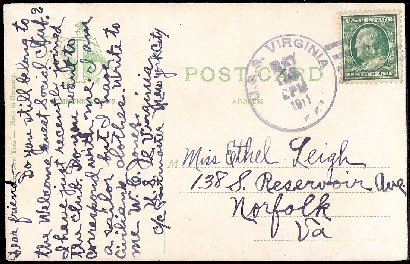 Dear friend
Do you still belong to
the Welcome Guest Social Club?
I have just recently joined
the club. Do you want to
correspond with me. I am
a sailor but I have
civilian clothes. Write to
me W. C. Jones
U.S.S. Virginia
c/o Postmaster New York City
POST CARD
ADDRESS
U.S.S. VIRGINIA
MAY
PM
1911
Miss Ethel Leigh
138 S. Reservoir Ave
Norfolk
Va